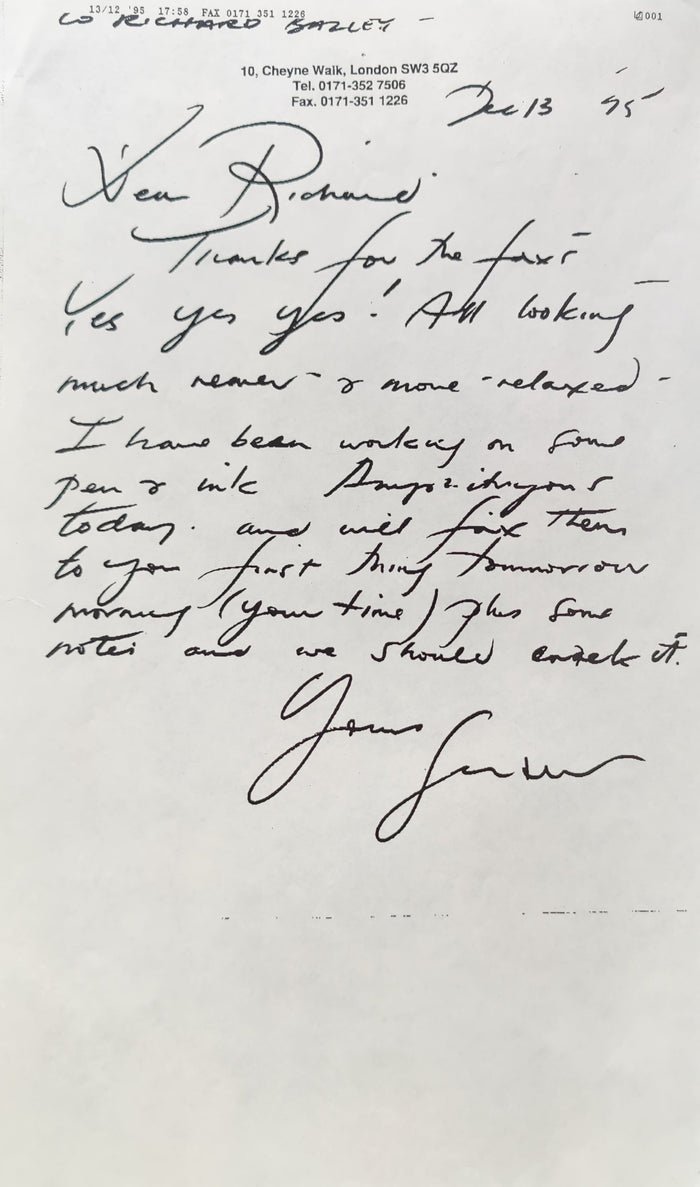 13/12 '95 17:58 FAX 0171 351 1226 001
to RICHARD BAZLEY -
10, Cheyne Walk, London SW3 5QZ
Tel. 0171-352 7506
Fax. 0171-351 1226
Dec 13 '95
Dear Richard
Thanks for the faxs
Yes yes yes! All looking
much nearer - & more - relaxed -
I have been working on some
pen & ink Amphitryons
today. and will fax them
to you first thing tommorrow
morning (your time) plus some
notes and we should crack it.
Yours